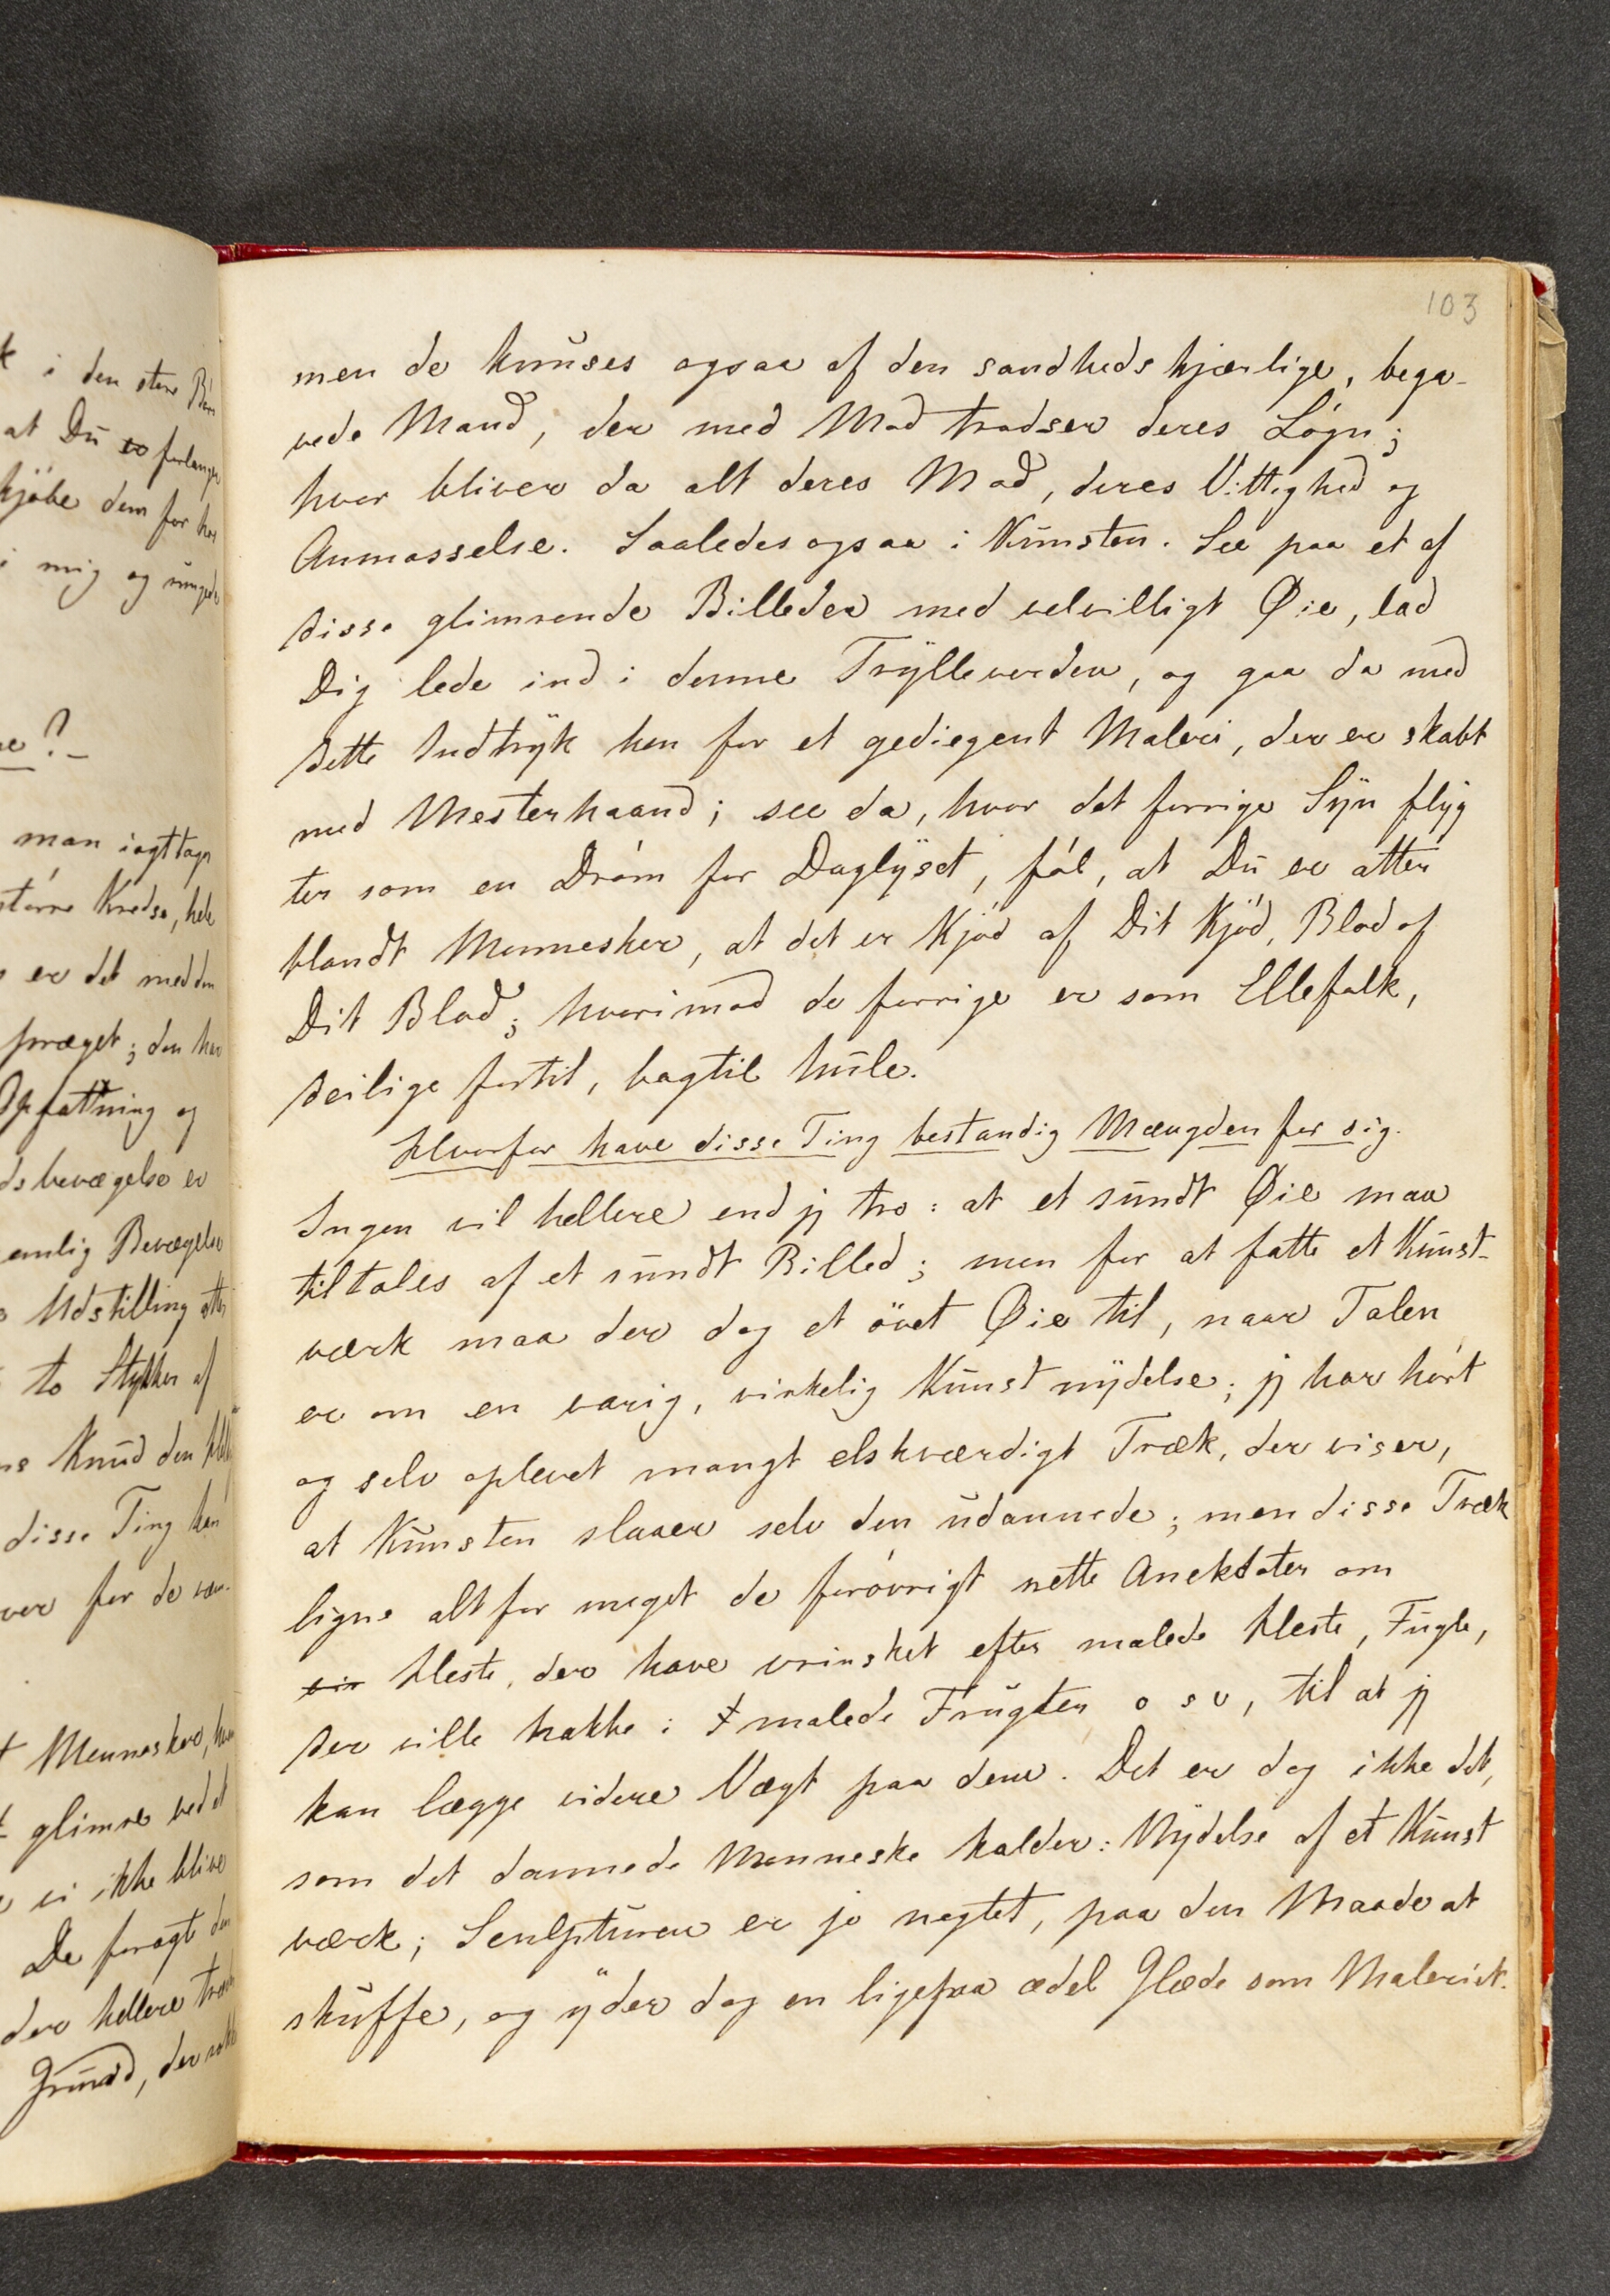 103
men de knuses ogsaa af den sandhedskjærlige, bega-
vede Mand, der med Mod trodser deres Løgn;
hvor bliver da alt deres Mod, deres Vittighed og
Anmasselse. Saaledes ogsaa i Kunsten. See paa et af
disse glimrende Billeder med velvilligt Øie, lad
Dig lede ind i denne Trylleverden, og gaa da med
dette Indtryk hen for et gediegent Maleri, der er skabt
med Mesterhaand; see da, hvor det forrige Syn flyg
ter som en Drøm for Daglyset, føl, at Du er atter
blandt Mennesker, at det er Kjød af Dit Kjød, Blod af
Dit Blod; hvorimod de forrige er som Ellefolk,
deilige fortil, bagtil hule.
Hvorfor have disse Ting bestandig Mængden for sig.
Ingen vil hellere end jeg tro: at et sundt Øie maa
tiltales af et sundt Billed; men for at fatte et Kunst-
værk maa der dog et övet Øie til, naar Talen
er om en varig, virkelig Kunstnydelse; jeg har hørt
og selv oplevet mangt elskværdigt Træk, der viser,
at Kunsten slaaer selv den udannede; men disse Træk
ligne altfor meget de forøvrigt nette Anekdoter om
Heste, der have vrinsket efter malede Heste, Fugle,
der ville hakke i malede Frugter o s v, til at jeg
kan lægge videre Vægt paa dem. Det er dog ikke det,
som det dannede Menneske kalder: Nydelse af et Kunst
værk; Sculpturen er jo negtet, paa den Maade at
skuffe, og yder dog en ligesaa ædel Glæde som Maleriet.
k i den store
at Du er forlanger
kjøbe dem for
i mig og
man iagttager
større Kredse, hele
er det med den
præget; den har
Opfattning og
dsbevægelse er
emlig Bevægelse
Udstilling
to Stykker af
Knud den
disse Ting
ver for de
Mennesker,
glimre ved et
vi ikke blive
De foragt den
der hellere
Grund, der